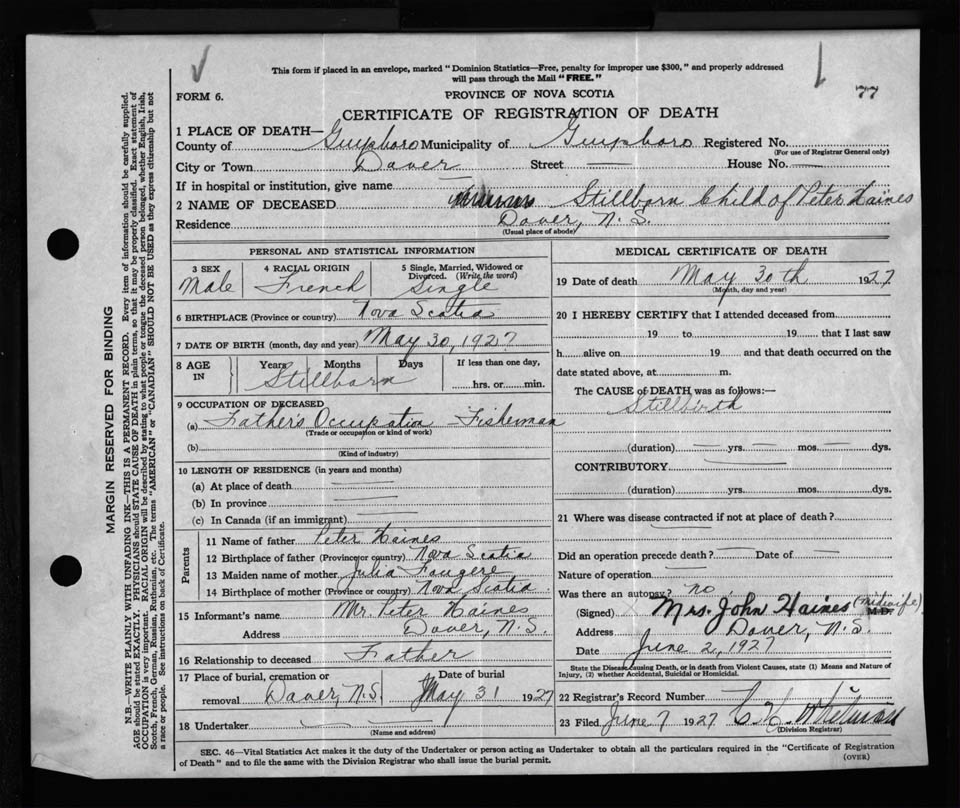 This form if placed in an envelope, marked "Dominion Statistics—Free, penalty for improper use $300," and properly addressed
will pass through the Mail "FREE."
77
FORM 6.
PROVINCE OF NOVA SCOTIA
CERTIFICATE OF REGISTRATION OF DEATH
1 PLACE OF DEATH—
County of Guysboro Municipality of Guysboro Registered No.
(For use of Registrar General only)
City or Town Dover Street — House No. —
If in hospital or institution, give name —
2 NAME OF DECEASED Stillborn Child of Peter Haines
Residence Dover, N.S.
(Usual place of abode)
PERSONAL AND STATISTICAL INFORMATION
3 SEX Male
4 RACIAL ORIGIN French
5 Single, Married, Widowed or Divorced. (Write the word) Single
6 BIRTHPLACE (Province or country) Nova Scotia
7 DATE OF BIRTH (month, day and year) May 30, 1927
8 AGE IN Years Months Days If less than one day,
Stillborn hrs. or min.
9 OCCUPATION OF DECEASED
(a) Father's Occupation – Fisherman
(Trade or occupation or kind of work)
(b)
(Kind of industry)
10 LENGTH OF RESIDENCE (in years and months)
(a) At place of death —
(b) In province —
(c) In Canada (if an immigrant) —
Parents
11 Name of father Peter Haines
12 Birthplace of father (Province or country) Nova Scotia
13 Maiden name of mother Julia Fougere
14 Birthplace of mother (Province or country) Nova Scotia
15 Informant's name Mr. Peter Haines
Address Dover, N.S.
16 Relationship to deceased Father
17 Place of burial, cremation or removal Dover, N.S. Date of burial May 31 1927
18 Undertaker —
(Name and address)
MEDICAL CERTIFICATE OF DEATH
19 Date of death May 30th 1927
(Month, day and year)
20 I HEREBY CERTIFY that I attended deceased from
19 to 19 that I last saw
h alive on 19 and that death occurred on the
date stated above, at m.
The CAUSE of DEATH was as follows:—
Stillbirth
(duration) — yrs. — mos. — dys.
CONTRIBUTORY —
(duration) yrs. mos. dys.
21 Where was disease contracted if not at place of death?
—
Did an operation precede death? — Date of —
Nature of operation —
Was there an autopsy? no
(Signed) Mrs. John Haines (midwife) M.D.
Address Dover, N.S.
Date June 2, 1927
State the Disease causing Death, or in death from Violent Causes, state (1) Means and Nature of
Injury, (2) whether Accidental, Suicidal or Homicidal.
22 Registrar's Record Number
23 Filed June 7 1927 C. H. Whitman
(Division Registrar)
SEC. 46—Vital Statistics Act makes it the duty of the Undertaker or person acting as Undertaker to obtain all the particulars required in the "Certificate of Registration
of Death" and to file the same with the Division Registrar who shall issue the burial permit.
(OVER)
MARGIN RESERVED FOR BINDING
N.B.—WRITE PLAINLY WITH UNFADING INK—THIS IS A PERMANENT RECORD. Every item of information should be carefully supplied.
AGE should be stated EXACTLY. PHYSICIANS should STATE CAUSE OF DEATH in plain terms, so that it may be properly classified. Exact statement of
OCCUPATION is very important. RACIAL ORIGIN will be described by stating to what people or tongue the deceased person belonged, whether English, Irish,
Scotch, French, German, Russian, Ruthenian, etc. The terms "AMERICAN" or "CANADIAN" SHOULD NOT BE USED as they express citizenship but not
a race or people. See instructions on back of Certificate.